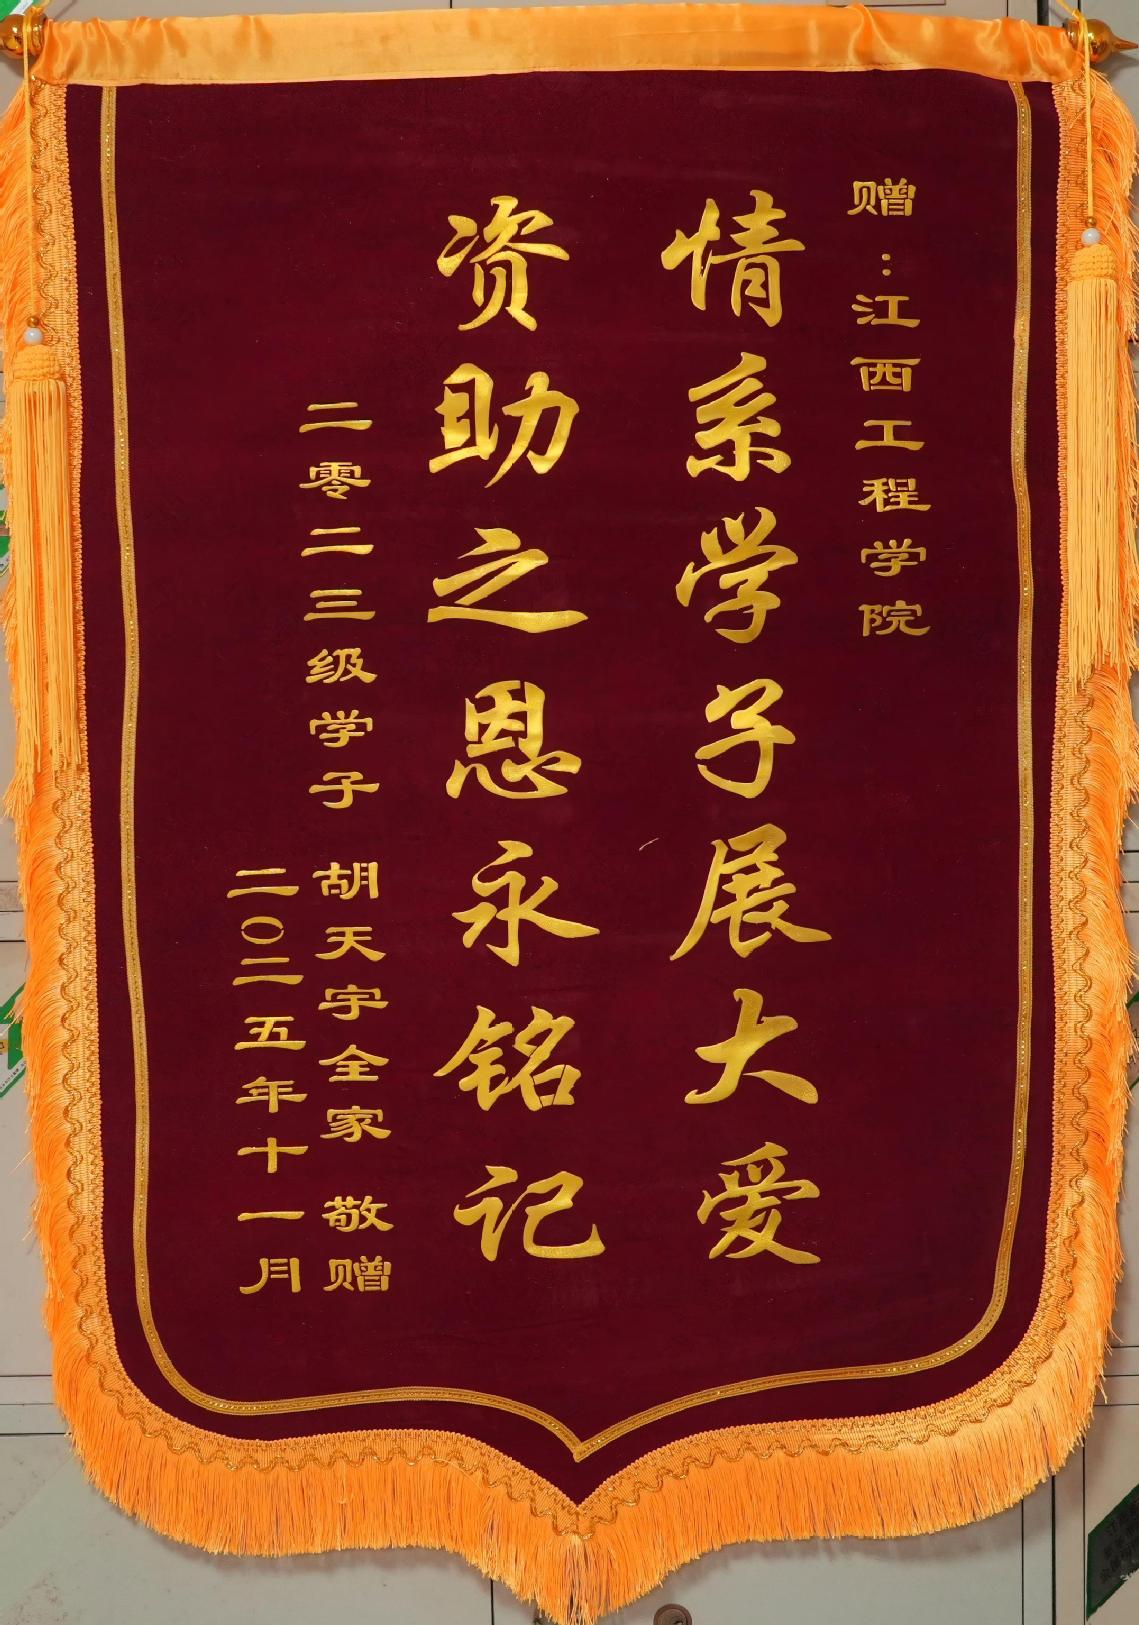 赠：江西工程学院
情系学子展大爱
资助之恩永铭记
二零二三级学子 胡天宇全家 敬赠
二〇二五年十一月